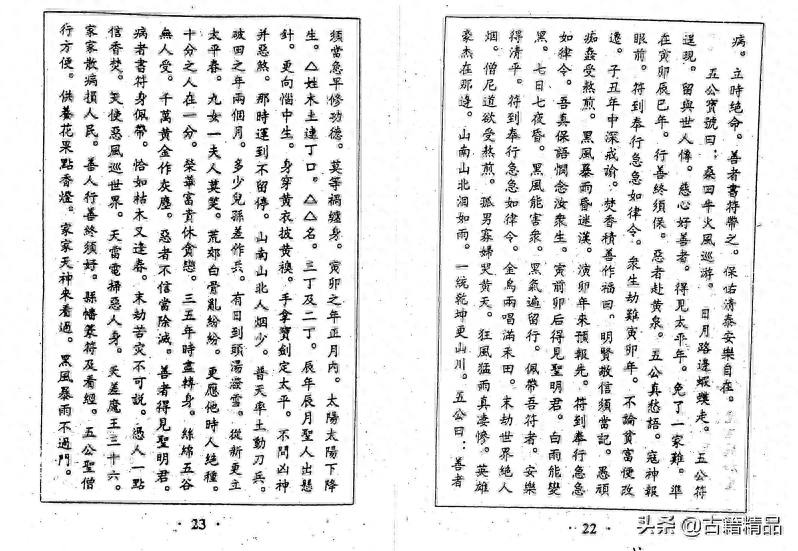 病。立時絕命。善者書符帶之。保佑清泰安樂自在。
五公寶號曰：桑田牛火風巡游。日月路邊蝦蟆走。五公符
逞現。留與世人傳。慈心好善者。得見太平年。免了一家難。準
在寅卯辰巳年。行善終須保。惡者赴黃泉。五公真愁語。寇神報
眼前。符到奉行急急如律令。衆生劫難寅卯年。不論貧富便改
遷。子丑年中深戒諭。焚香積善作福田。明賢敬信須當記。愚頑
痴蠢受熬煎。黑風暴雨昏迷漢。演卯年來預報先。符到奉行急急
如律令。吾真保語憫念汝衆生。寅前卯后得見聖明君。白雨能變
黑。七日七夜昏。黑風能害衆。黑氣遍留行。佩帶吾符者。安樂
得清平。符到奉行急急如律令。金烏兩唱滿禾田。末劫世界絕人
烟。僧尼道欲受熬煎。孤男寡婦哭黃天。狂風猛雨真凄慘。英雄
豪杰在那邊。山南山北泪如雨。一統乾坤更山川。五公曰：善者
·22·
須當急早修功德。莫等禍纏身。寅卯之年正月內。太陽太陽下降
生。△姓木土達丁口。△△名。三丁及二丁。辰年辰月聖人出懸
針。更向惱中生。身穿黃衣披黃襖。手拿寶劍定太平。不問凶神
并惡煞。那時運到不留停。山南山北人烟少。普天率土動刀兵。
破田之年兩個月。多少兒孫差作兵。有日到頭湯潑雪。從新更立
太平春。九女一夫人莫笑。荒郊白骨亂紛紛。更應他時人絕種。
十分之人在一分。榮華富貴休貪戀。三五年時盡轉身。絲綿五谷
無人受。千萬黃金作灰塵。惡者不信當除滅。善者得見聖明君。
病者書符身佩帶。恰如枯木又逢春。末劫苦灾不可說。憑人一點
信香焚。天使惡風巡世界。天雷電掃惡人身。天差魔王三十六。
家家散病損人民。善人行善終須好。縣幡篆符及看經。五公聖僧
行方便。供養花果點香燈。家家天神來看過。黑風暴雨不過門。
·23·
头条 @古籍精品